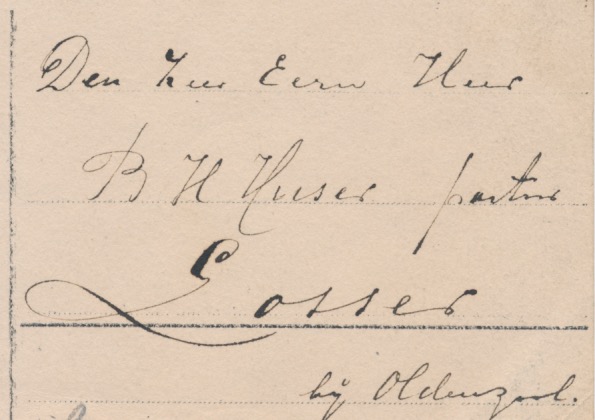 Den Zeer Eerw Heer
B H Huser pastoor
Losser
bij Oldenzaal.